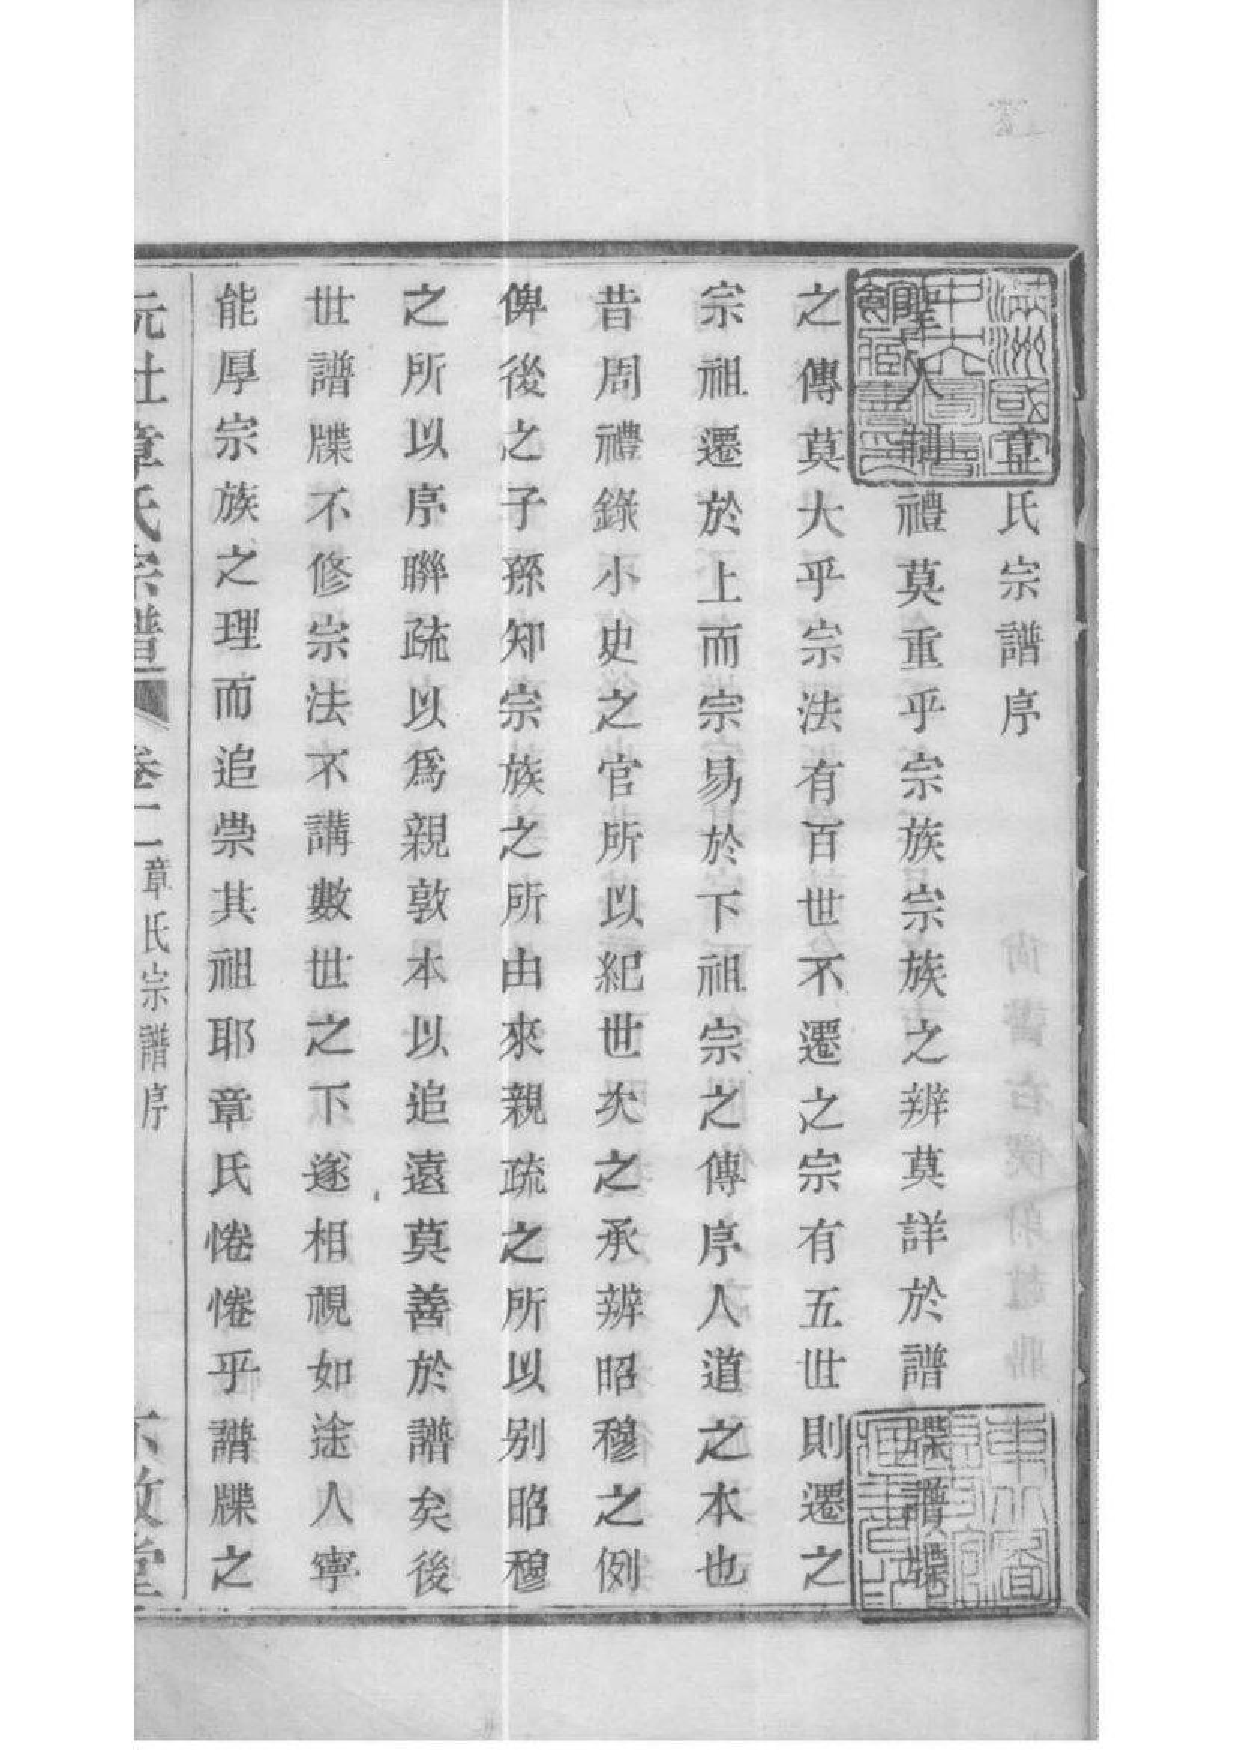 章氏宗譜序
聖人制禮莫重乎宗族宗族之辨莫詳於譜牒譜牒
之傳莫大乎宗法有百世不遷之宗有五世則遷之
宗祖遷於上而宗易於下祖宗之傳序人道之本也
昔周禮錄小史之官所以紀世次之承辨昭穆之例
俾後之子孫知宗族之所由來親疏之所以别昭穆
之所以序聯疏以為親敦本以追遠莫善於譜矣後
世譜牒不修宗法不講數世之下遂相視如途人寧
能厚宗族之理而追崇其祖耶章氏惓惓乎譜牒之
阮社章氏宗譜 卷一 章氏宗譜序